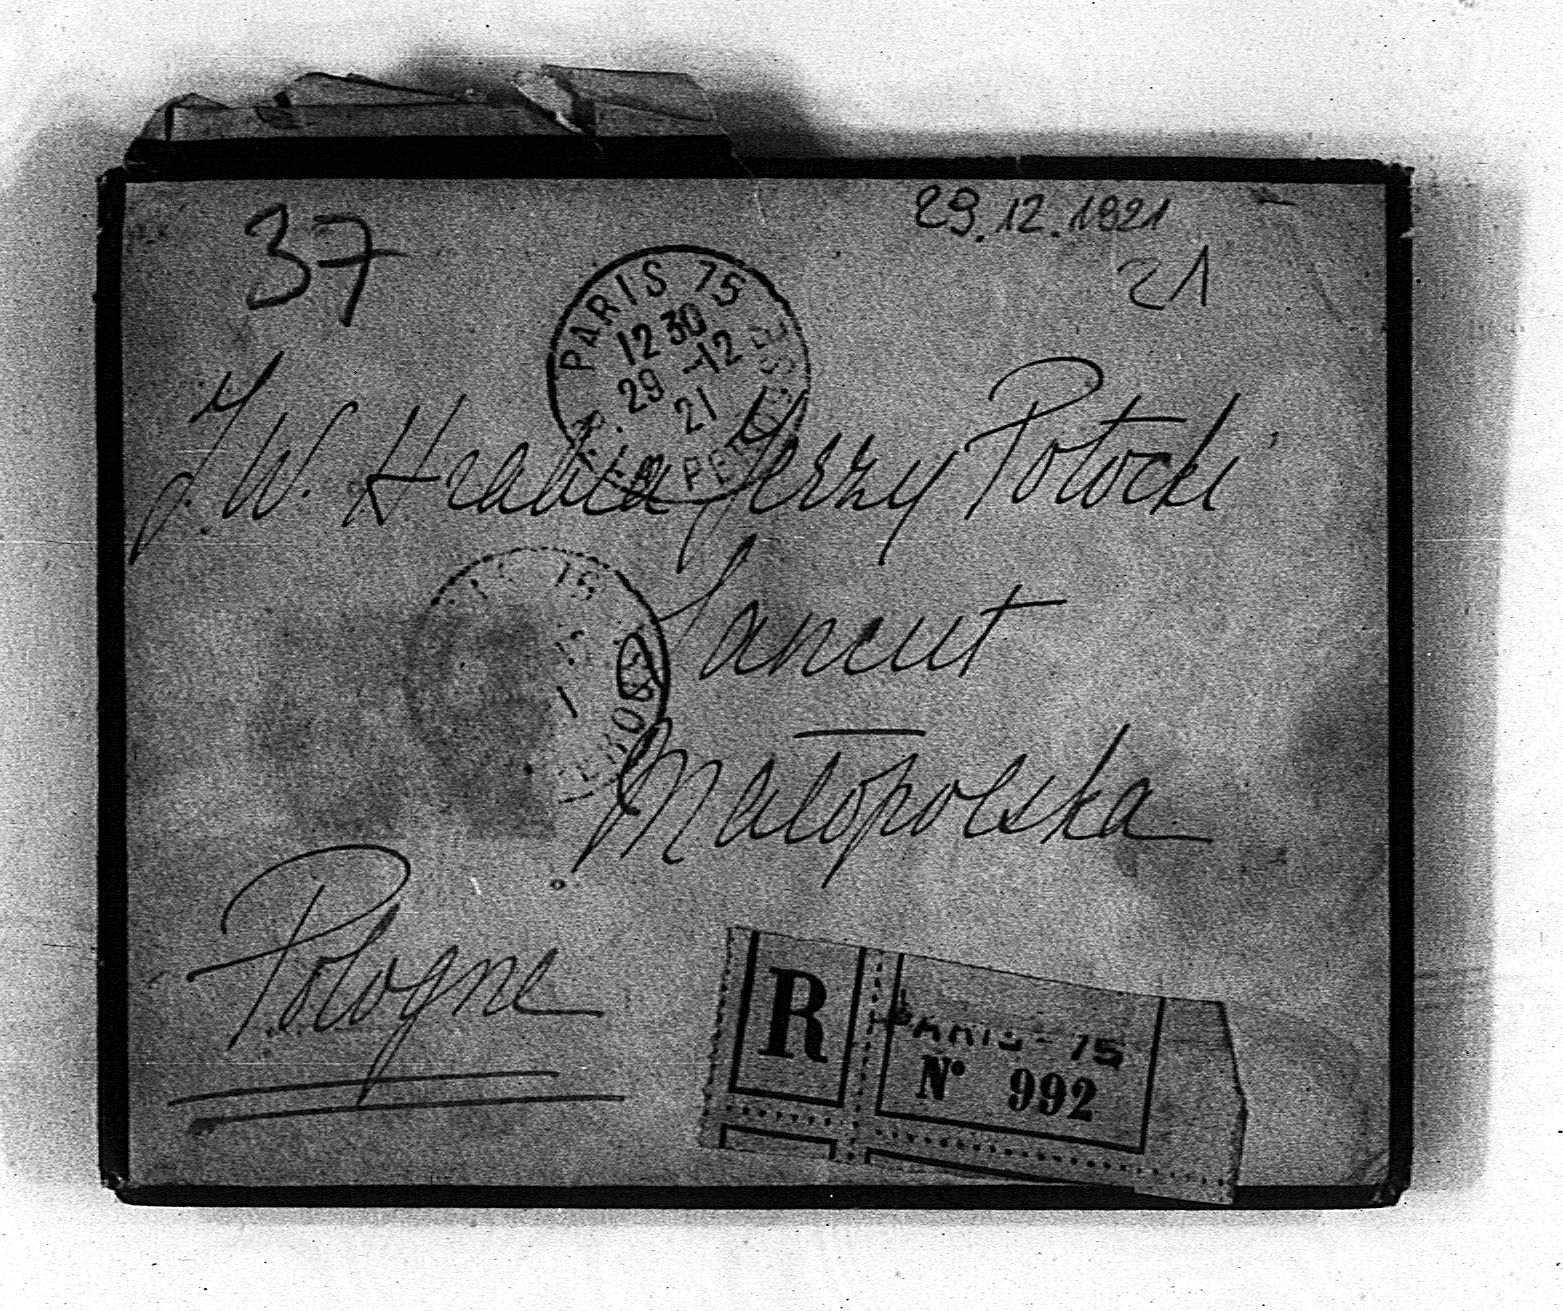 37
29.12.1921
21
PARIS 75
12 30
29 -12
21
J.W. Hrabia Jerzy Potocki
Lancut
Małopolska
Pologne
R
PARIS - 75
N° 992